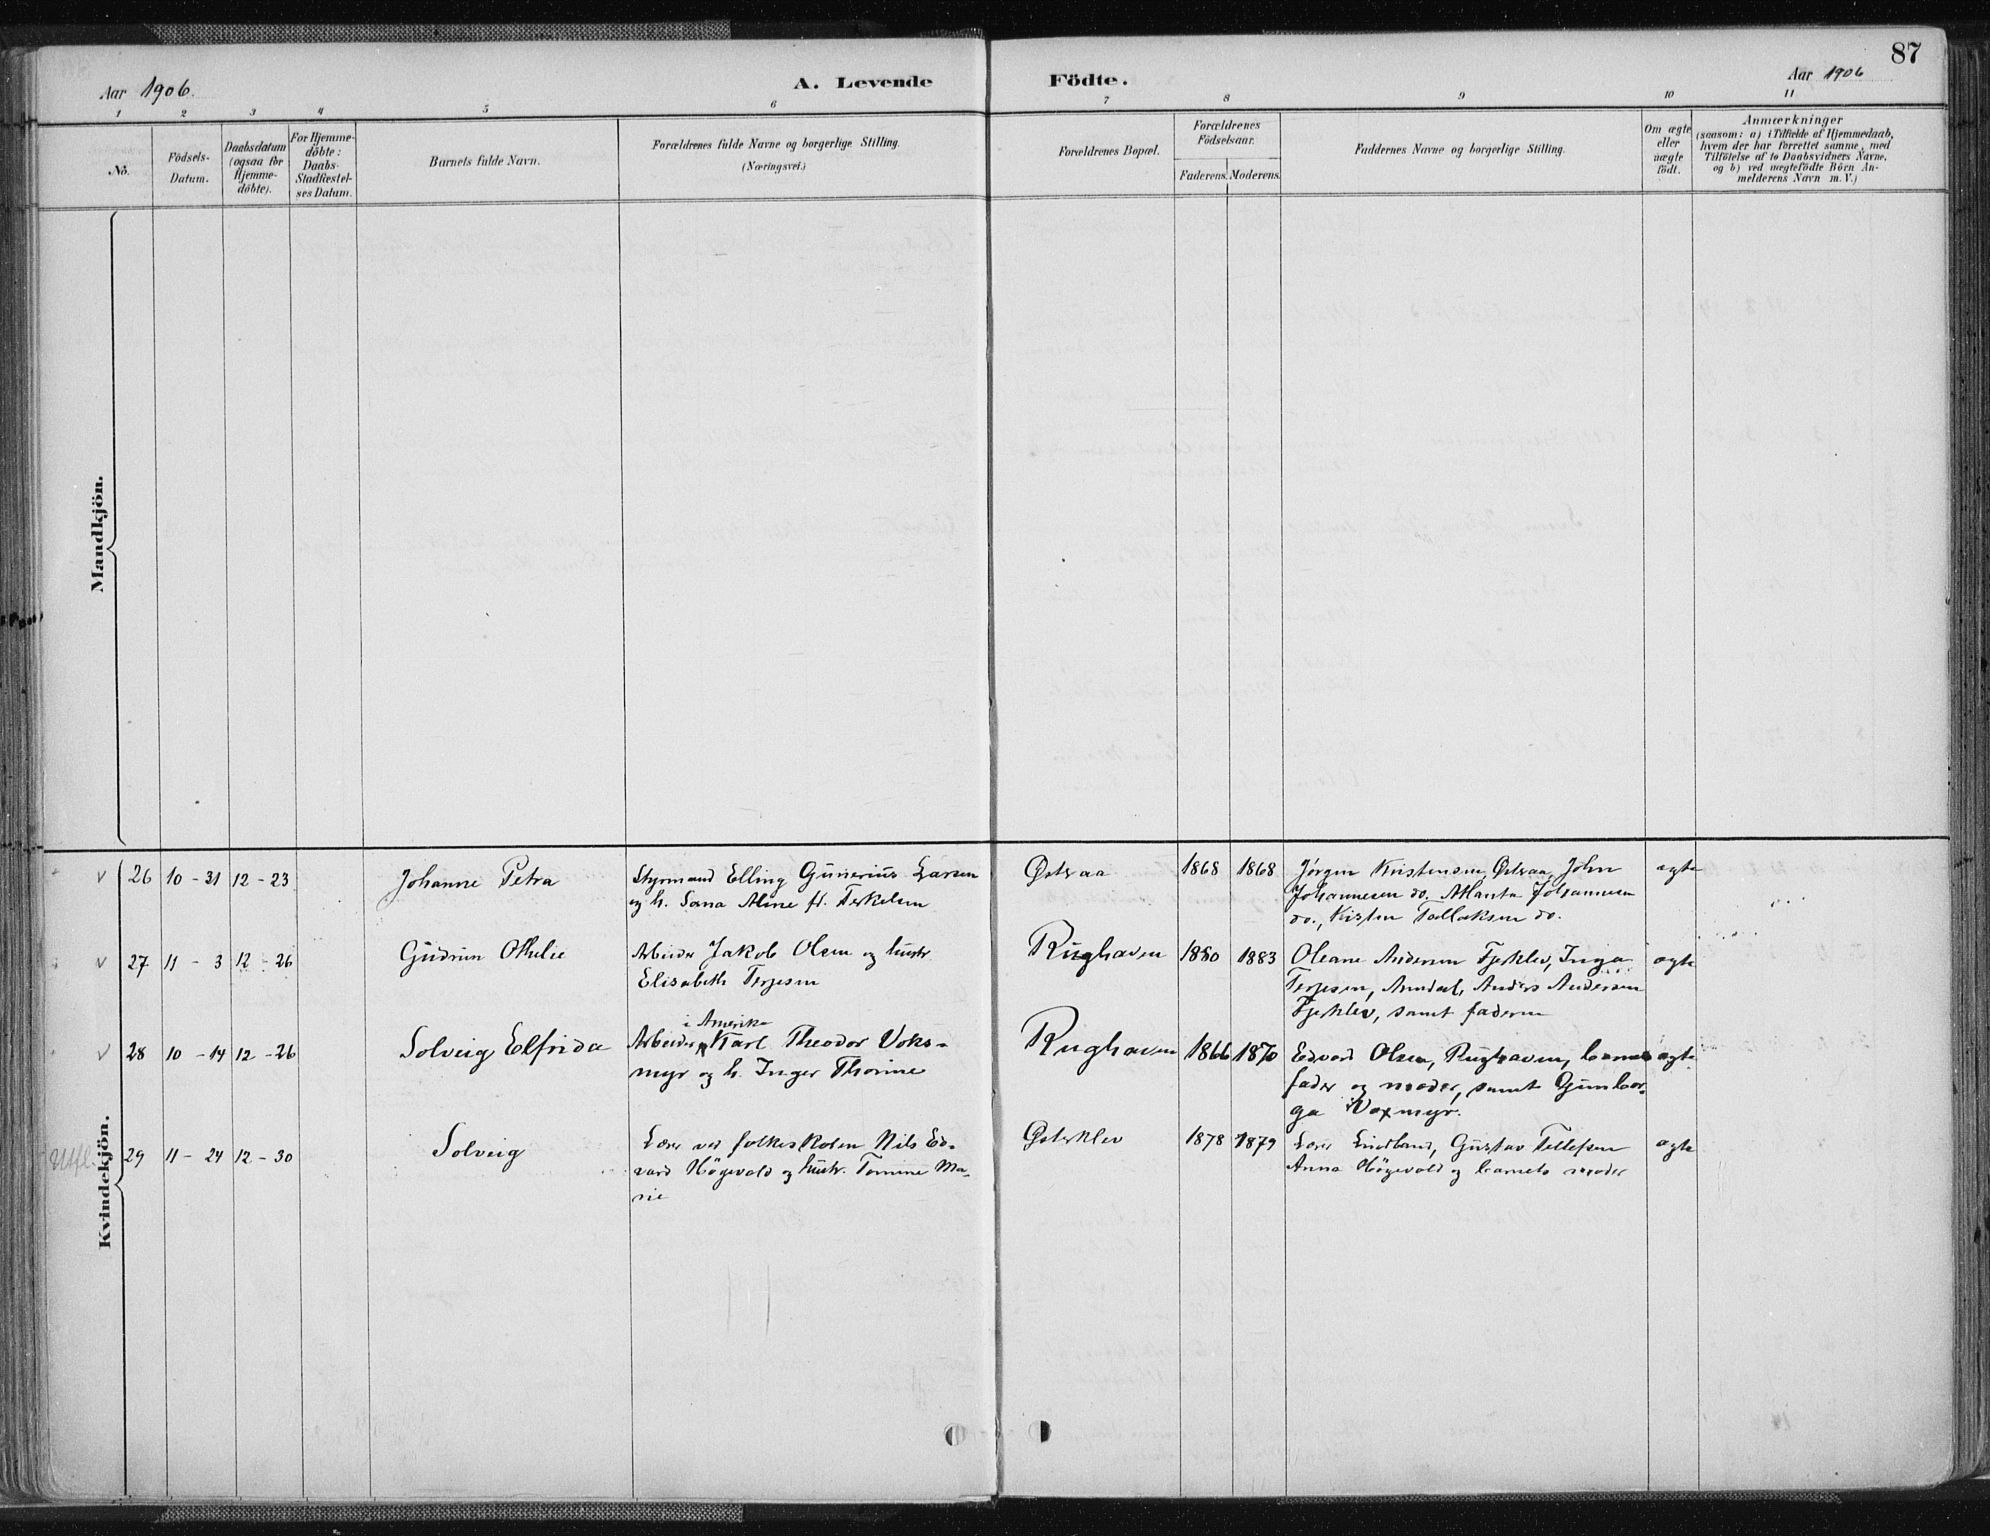 87
Aar 1906.
A. Levende
Födte.
Aar 1906
1 2 3 4 5 6 7 8 9 10 11
No.
Födsels-
Datum.
Daabsdatum
(ogsaa for
Hjemme-
döbte).
For Hjemme-
döbte:
Daabs-
Stadfæstel-
ses Datum.
Barnets fulde Navn.
Forældrenes fulde Navne og borgerlige Stilling.
(Næringsvei.)
Forældrenes Bopæl.
Forældrenes
Födselsaar.
Faderens. Moderens.
Faddernes Navne og borgerlige Stilling.
Om ægte
eller
uægte
födt.
Anmærkninger
(saasom: a) i Tilfælde af Hjemmedaab,
hvem der har forrettet samme, med
Tilföielse af to Daabsvidners Navne,
og b) ved uægtefödte Börn An-
melderens Navn m. V.)
Mandkjön.
Kvindekjön.
v 26 10 - 31 12 - 23 Johanne Petra
Styrmand Elling Gunerius Larsen
og h. Aline f. Terkelsen
Østraa 1868 1868
Jørgen Kristensen, Østraa, John
Johannesen do. Johannesen
do., Kisten Tallaksen do.
ægte
v 27 11 - 3 12 - 26 Gudrun Othelie
Arbeider Jakob Olsen og hustr
Elisabeth Terjesen
Rughaven 1880 1883
Oleane Andersen Fjeklev, Inga
Terjesen, Arendal, Anders Andersen
Fjeklev, samt faderen
ægte
v 28 10 - 14 12 - 26 Solveig Elfrida
i Amerika
Arbeider Karl Theodor Voks-
myr og h. Inger Thorine
Rughaven 1866 1870
Edvard Olsen, Rughaven, barnets
fader og moder, samt Gunbor-
ga Voxmyr.
ægte
Utfl. 29 11 - 24 12 - 30 Solveig
Lærer ved folkeskolen Nils Ed-
vard Høgevold og hustr. Tomine Ma-
rie
Østeklev 1878 1879
Lærer Lindland, Gustav Tellefsen
Anna Høgevold og barnets moder
ægte